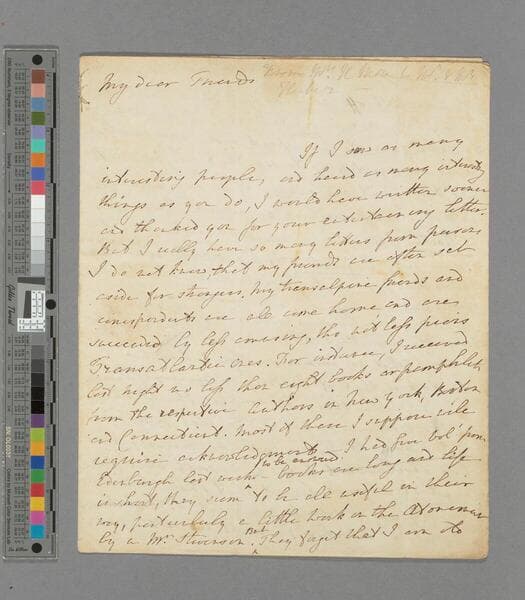 My dear Friends
If I saw as many
interesting people, and heard as many interesting
things as you do, I would have written sooner
and thanked you for your entertaining letter.
But I really have so many letters from persons
I do not know, that my friends are often set
aside for strangers. My transalpine friends and
correspondents are all come home and are
succeeded by less amusing, tho' not less
Transatlantic ones. For instance, I received
last night no less than eight books or pamphlets
from the respective Authors in New York, Boston
and Connecticut. Most of these I suppose will
require acknowledgments I had five vols from
Edinburgh last week - books are long and life
is short, they seem to be all useful in their
way, particularly a little work on the Atonement
by a Mr. Stevenson. But They forget that I am